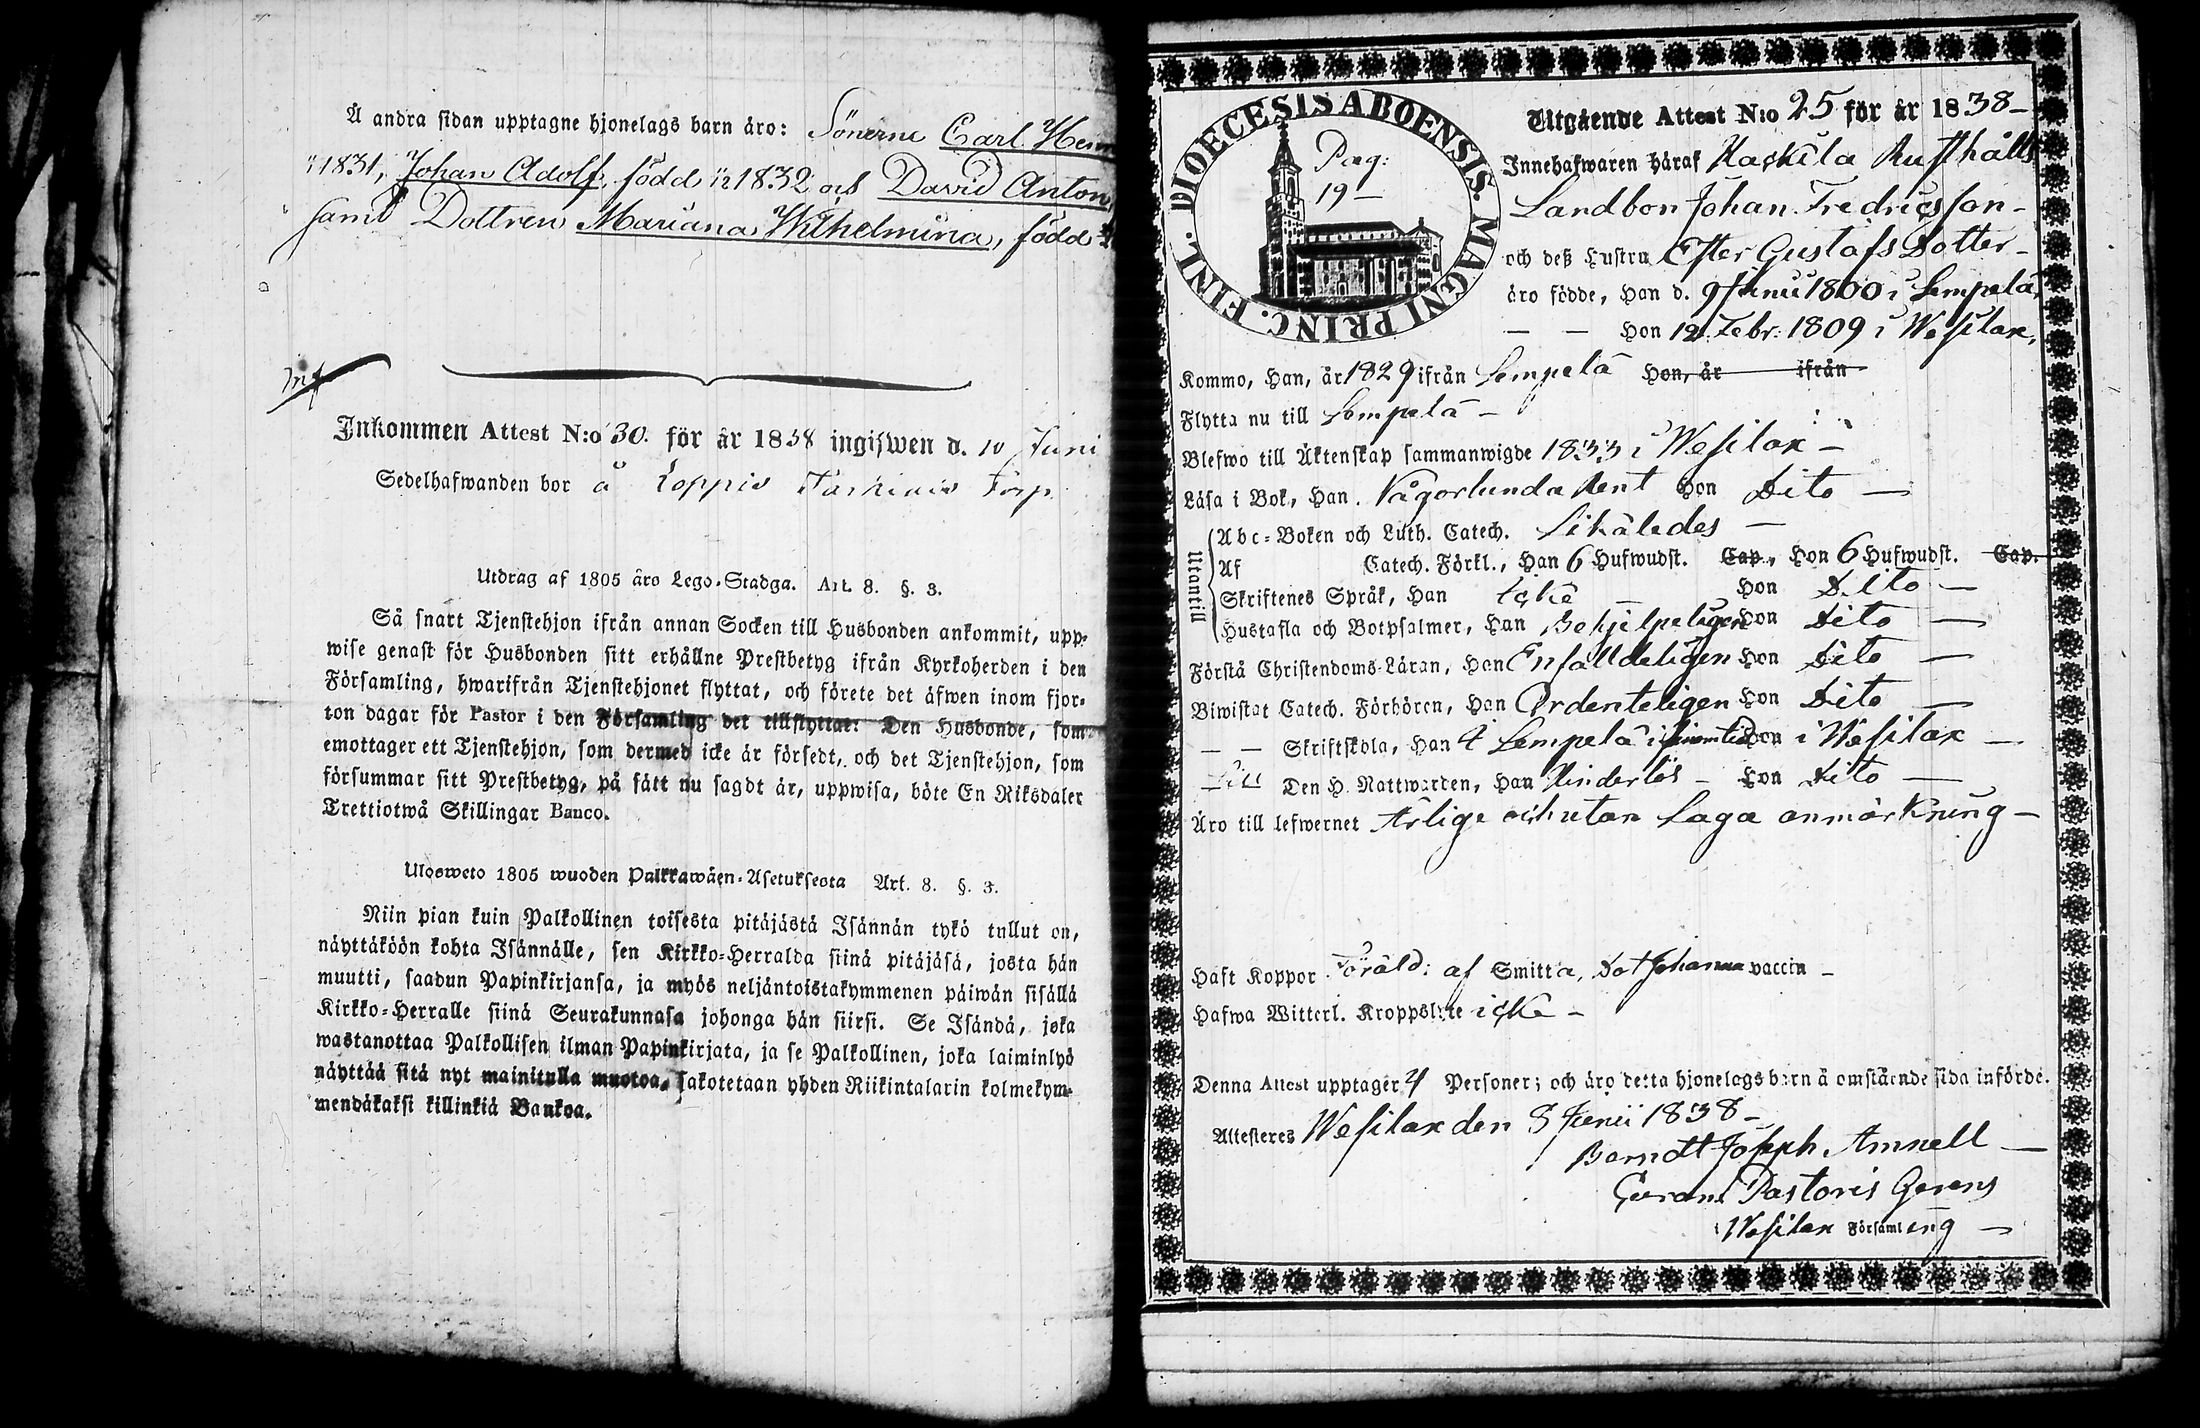 Å andra sidan upptagne hjonelags barn äro: Sönerne Carl
1831, Johan Adolf, född 1832 och David Anton
samt Dottren Mariana Wilhelmina, född
Inkommen Attest N:o 30. för år 1838 ingifwen d. 10 Juni
Sedelhafwanden bor å Loppis Torp
Utdrag af 1805 års Lego-Stadga. Art. 8. §. 3.
Så snart Tjenstehjon ifrån annan Socken till Husbonden ankommit, upp-
wise genast för Husbonden sitt erhållne Prestbetyg ifrån Kyrkoherden i den
Församling, hwarifrån Tjenstehjonet flyttat, och förete det äfwen inom fjor-
ton dagar för Pastor i den Församling det tillflyttat: Den Husbonde, som
emottager ett Tjenstehjon, som dermed icke är försedt, och det Tjenstehjon, som
försummar sitt Prestbetyg, på sätt nu sagdt är, uppwisa, böte En Riksdaler
Trettiotwå Skillingar Banco.
Ulosweto 1805 wuoden Palkkawäen-Asetuksesta Art. 8. §. 3.
Niin pian kuin Palkollinen toisesta pitäjästä Isännän tykö tullut on,
näyttäköön kohta Isännälle, sen Kirkko-Herralda siinä pitäjäsä, josta hän
muutti, saadun Papinkirjansa, ja myös neljäntoistakymmenen päiwän sisällä
Kirkko-Herralle siinä Seurakunnasa johonga hän siirsi. Se Isändä, joka
wastanottaa Palkollisen ilman Papinkirjata, ja se Palkollinen, joka laiminlyö
näyttää sitä nyt mainitulla muotoa, sakotetaan yhden Riikintalarin kolmekym-
mendäkaksi killinkiä Bankoa.
DIOECESIS ABOENSIS. MAGNI PRINC. FINL.
Pag:
19 -
Utgående Attest N:o 25 för år 1838 -
Innehafwaren häraf Kaskila Rusthålls
Landbon Johan Fredricsson -
och deß Hustru Ester Gustafs Dotter -
äro födde, Han d. 9 Junii 1800 i Lempelä,
— — Hon 12 Febr: 1809 i Wesilax,
Kommo, Han, år 1829 ifrån Lempelä Hon, år ifrån
Flytta nu till Lempelä -
Blefwo till Äktenskap sammanwigde 1833 i Wesilax -
Läsa i Bok, Han Någorlunda Rent Hon Dito —
Utantill
Abc-Boken och Luth. Catech. Likåledes —
Af Catech. Förkl., Han 6 Hufwudst. Cap., Hon 6 Hufwudst. Cap.
Skriftenes Språk, Han icke Hon Dito —
Hustafla och Botpsalmer, Han Behjelpeligen Hon Dito —
Förstå Christendoms-Läran, Han Enfalldeligen Hon Dito —
Biwistat Catech. Förhören, Han Ordenteligen Hon Dito —
— — Skriftskola, Han i Lempelä Hon i Wesilax —
Den H. Nattwarden, Han Hinderlös - Hon Dito —
Äro till lefwernet Ärlige och utan Laga anmärkning -
Haft Koppor Föräld: af Smitta, Dot Johanna vaccin -
Hafwa Witterl. Kroppslyte icke -
Denna Attest upptager 4 Personer; och äro detta hjonelags barn å omstående sida införde.
Attesteres Wesilax den 8 Junii 1838 -
Berndt Joseph Amnell —
Pastoris Gerens
i Wesilax Församling —